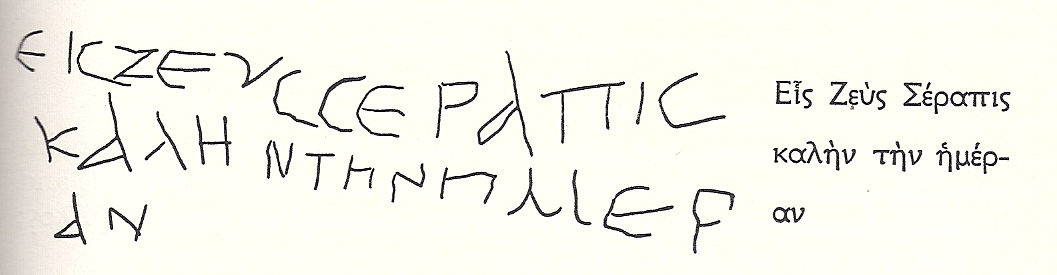 ΕΙϹΖΕΥϹϹΕΡΑΠΙϹ
ΚΑΛΗΝΤΗΝΗΜΕΡ
ΑΝ
Εἷς Ζε̣ὺς Σέραπις
καλὴν τὴν ἡμέρ-
αν